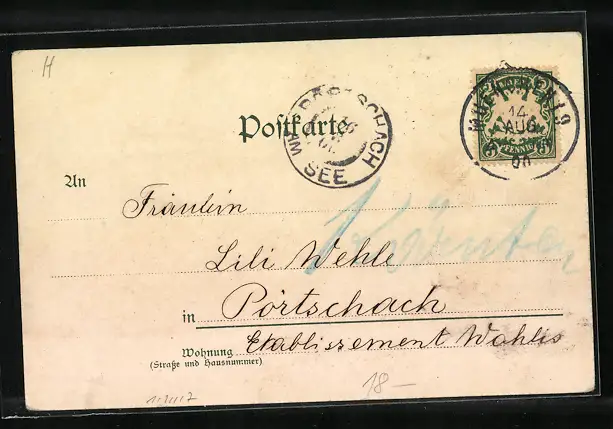 H
PÖRTSCHACH
AM SEE
MUENCHEN
14
AUG
00
BAYERN
5 PFENNIG 5
Postkarte
An
Fräulein
Kärnten
Lili Wehle
in Pörtschach
Wohnung Etablissement Wahlis
(Straße und Hausnummer)
18 —